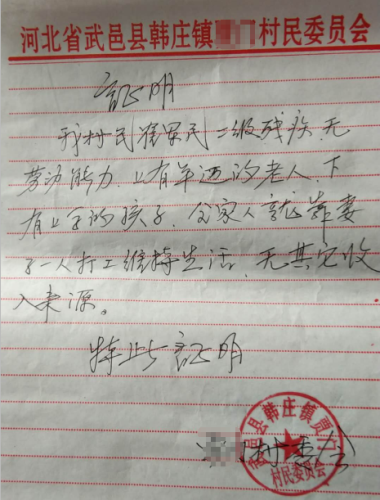 河北省武邑县韩庄镇村民委员会
证明
我村民国民二级残疾，无
劳动能力，上有年迈的老人，下
有上学的孩子，全家人就靠妻
子一人打工维持生活，无其它收
入来源。
特此证明
村委会
武邑县韩庄镇贾
村民委员会